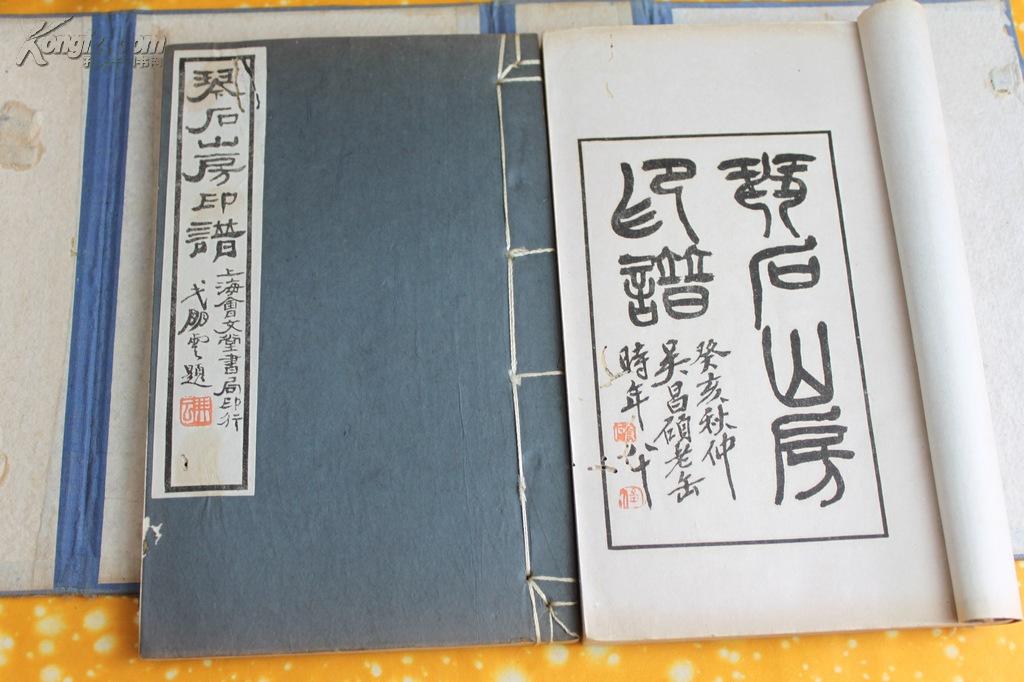 Kongfz.com
琴石山房印譜
上海會文堂書局印行
題
琴石山房
印譜
癸亥秋仲
吳昌碩老缶
時年八十